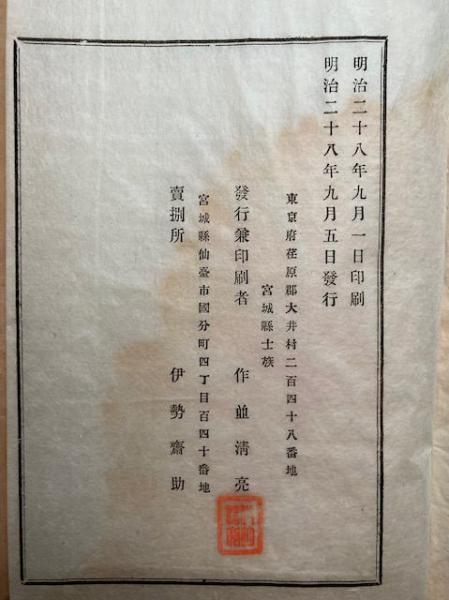 明治二十八年九月一日印刷
明治二十八年九月五日發行
東京府荏原郡大井村二百四十八番地
宮城縣士族
發行兼印刷者 作並清亮
宮城縣仙臺市國分町四丁目百四十番地
賣捌所 伊勢齋助